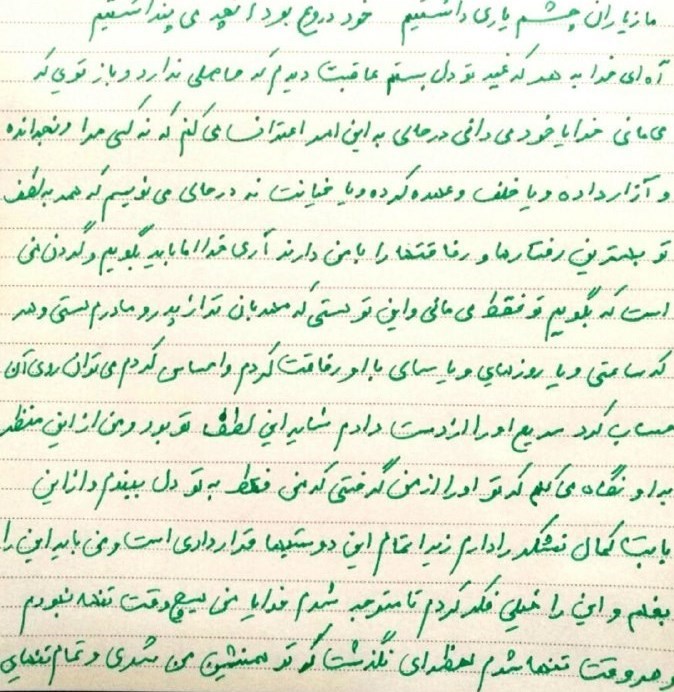 ما ز یاران چشم یاری داشتیم خود دروغ بود آنچه می پنداشتیم
آه ای خدا به هر که غیر تو دل بستم عاقبت دیدم که حاصلی ندارد و باز تویی که
می مانی خدایا خود می دانی در حالی به این امر اعتراف می کنم که نه کسی مرا رنجانده
و آزار داده و یا خلف وعده کرده و یا خیانت نه در حالی می نویسم که همه به لطف
تو بهترین رفتارها و رفاقتها را با من دارند آری خدا اما باید بگویم و گردن من
است که بگویم تو فقط می مانی و این تو هستی که مهربان تر از پدر و مادرم هستی و هر
که ساعتی و یا روزهای و یا سالی با او رفاقت کردم و احساس کردم می توان روی آن
حساب کرد سریع او را از دست دادم شاید این لطف تو بود و من از این منظر
به او نگاه می کنم که تو او را از من گرفتی که من فقط به تو دل ببندم و از این
بابت کمال تشکر را دارم زیرا تمام این دوستیها قراردادی است و من باید این را
بفهمم و این را خیلی فکر کردم تا متوجه شدم خدایا من هیچ وقت تنها نبودم
و هر وقت تنها شدم لحظه ای نگذشت که تو همنشین من شدی و تمام تنهایی